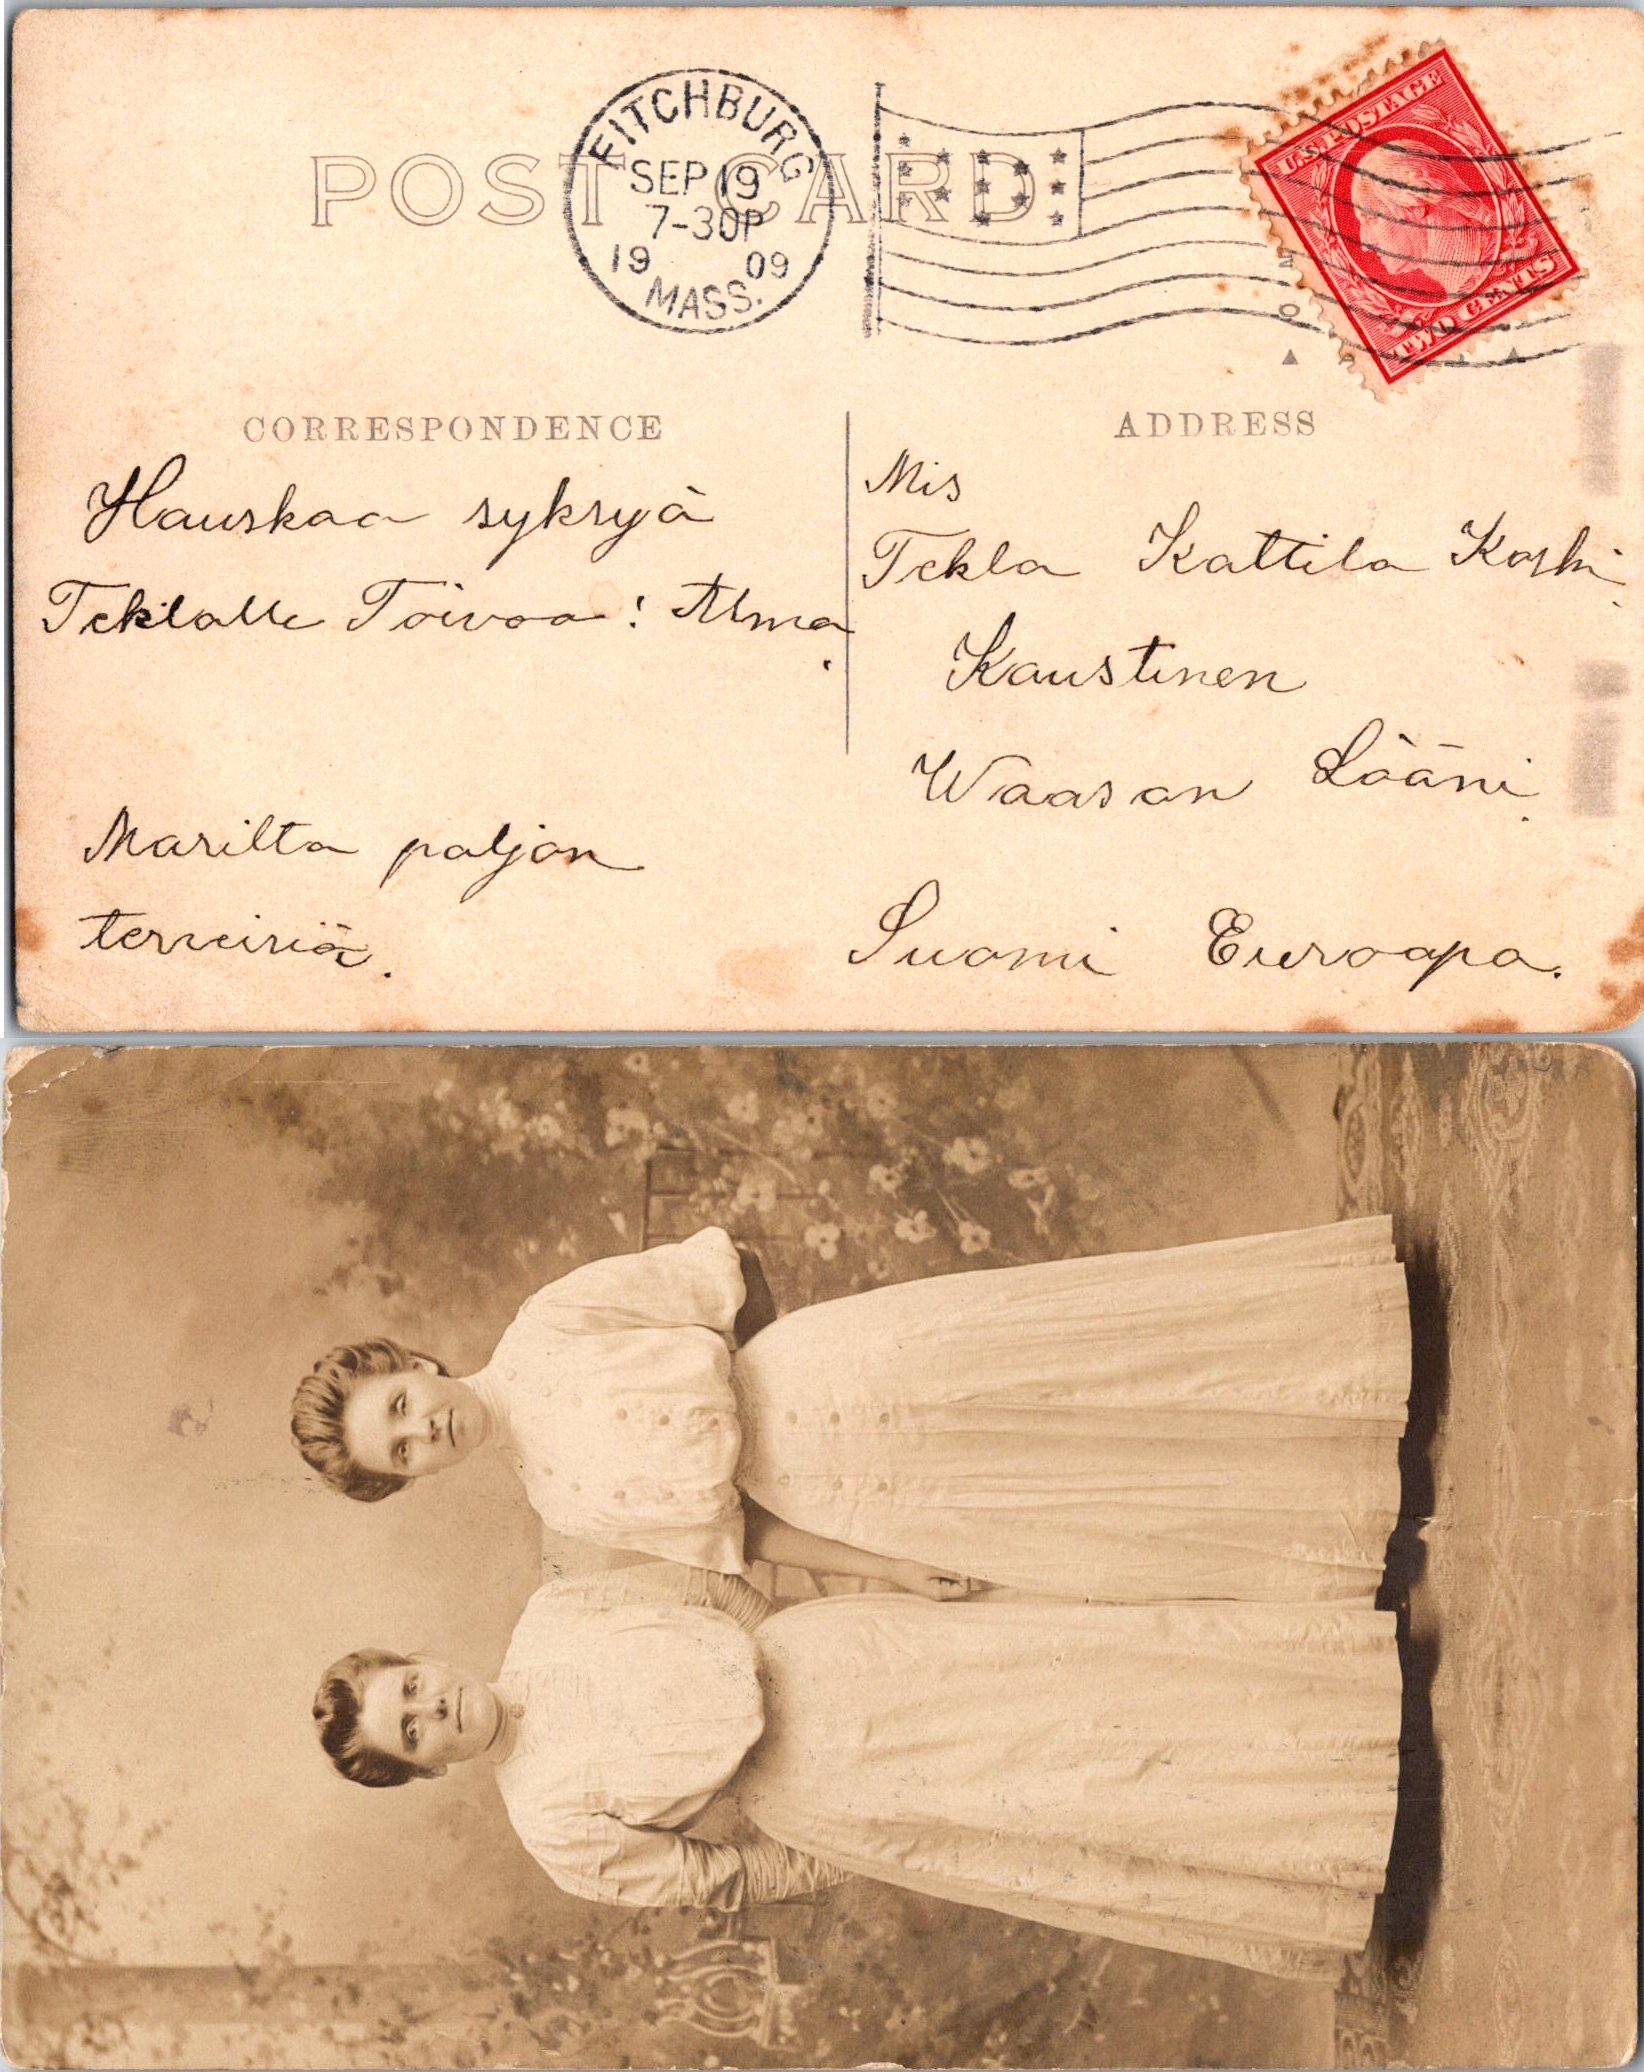 POST CARD
FITCHBURG
SEP 19
7-30P
19 09
MASS.
U.S. POSTAGE
TWO CENTS
CORRESPONDENCE
ADDRESS
Hauskaa syksyä
Teklalle Toivoo! Alma.
Marilta paljon
terveisiä.
Mis
Tekla Kattila Koski.
Kaustinen
Waasan Lääni.
Suomi Euroopa.